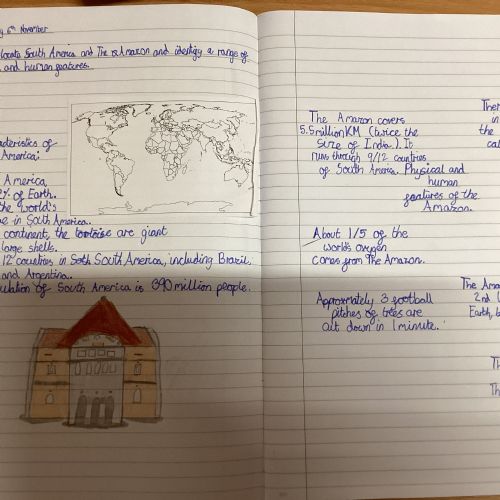 y 6th November
locate South America and The Amazon and identify a range of
and human features.
aracteristics of
America:
America,
2% of Earth.
the world's
e in South America.
continent, the tortoise are giant
large shells.
12 countries in South America, including Brazil
and Argentina.
ulation of South America is 390 million people.
The Amazon covers
5.5 million KM (twice the
size of India). It
runs through 9/12 countries
of South America.
Physical and
human
features of the
Amazon.
About 1/5 of the
world's oxygen
comes from The Amazon.
Approximately 3 football
pitches of trees are
cut down in 1 minute.
Ther
in
the
cal
The Ama
2nd l
Earth, b
Th
Th